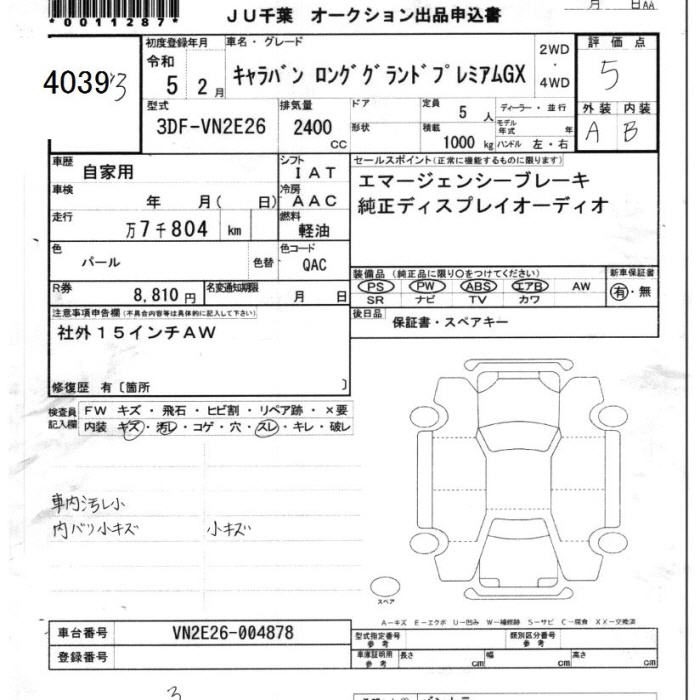 *0011287*
JU千葉 オークション出品申込書
月 日AA
40393
初度登録年月
令和
5 2月
車名・グレード
キャラバン ロンググランドプレミアムGX
2WD
・
4WD
評価点
5
外装 内装
A B
型式
3DF-VN2E26
排気量
2400
cc
ドア
形状
定員 5 人
積載 1000 kg
ディーラー・並行
モデル年式 年
ハンドル 左・右
車歴
自家用
シフト
IAT
車検
年 月( 日)
冷房
AAC
走行
万7千804 km
燃料
軽油
色
パール
色替
色コード
QAC
R券
8,810円
名変通知期限
月 日
セールスポイント(正常に機能するものに限ります)
エマージェンシーブレーキ
純正ディスプレイオーディオ
装備品 (純正品に限り○をつけてください)
PS PW ABS エアB AW
SR ナビ TV カワ
新車保証書
有・無
後日品
保証書・スペアキー
注意事項申告欄(不具合内容等は具体的に記入して下さい)
社外15インチAW
修復歴 有〔箇所 〕
検査員
記入欄
FW キズ・飛石・ヒビ割・リペア跡・×要
内装 キズ・汚レ・コゲ・穴・スレ・キレ・破レ
車内汚レ小
内バリ小キズ 小キズ
スペア
A-キズ E-エクボ U-凹み W-補修跡 S-サビ C-腐食 XX-交換済
車台番号 VN2E26-004878
登録番号
型式指定番号
参考
類別区分番号
参考
車庫証明用
参考
長さ cm 幅 cm 高さ cm
3